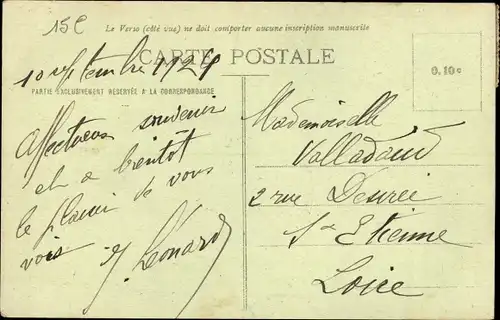 15€
Le Verso (côté vue) ne doit comporter aucune inscription manuscrite
CARTE POSTALE
10 septembre 1924
0.10c
PARTIE EXCLUSIVEMENT RÉSERVÉE A LA CORRESPONDANCE
Affectueux souvenir
et a bientôt
le plaisir de vous
voir
Leonard
Mademoiselle
Valladaud
2 rue Désirée
St Etienne
Loire